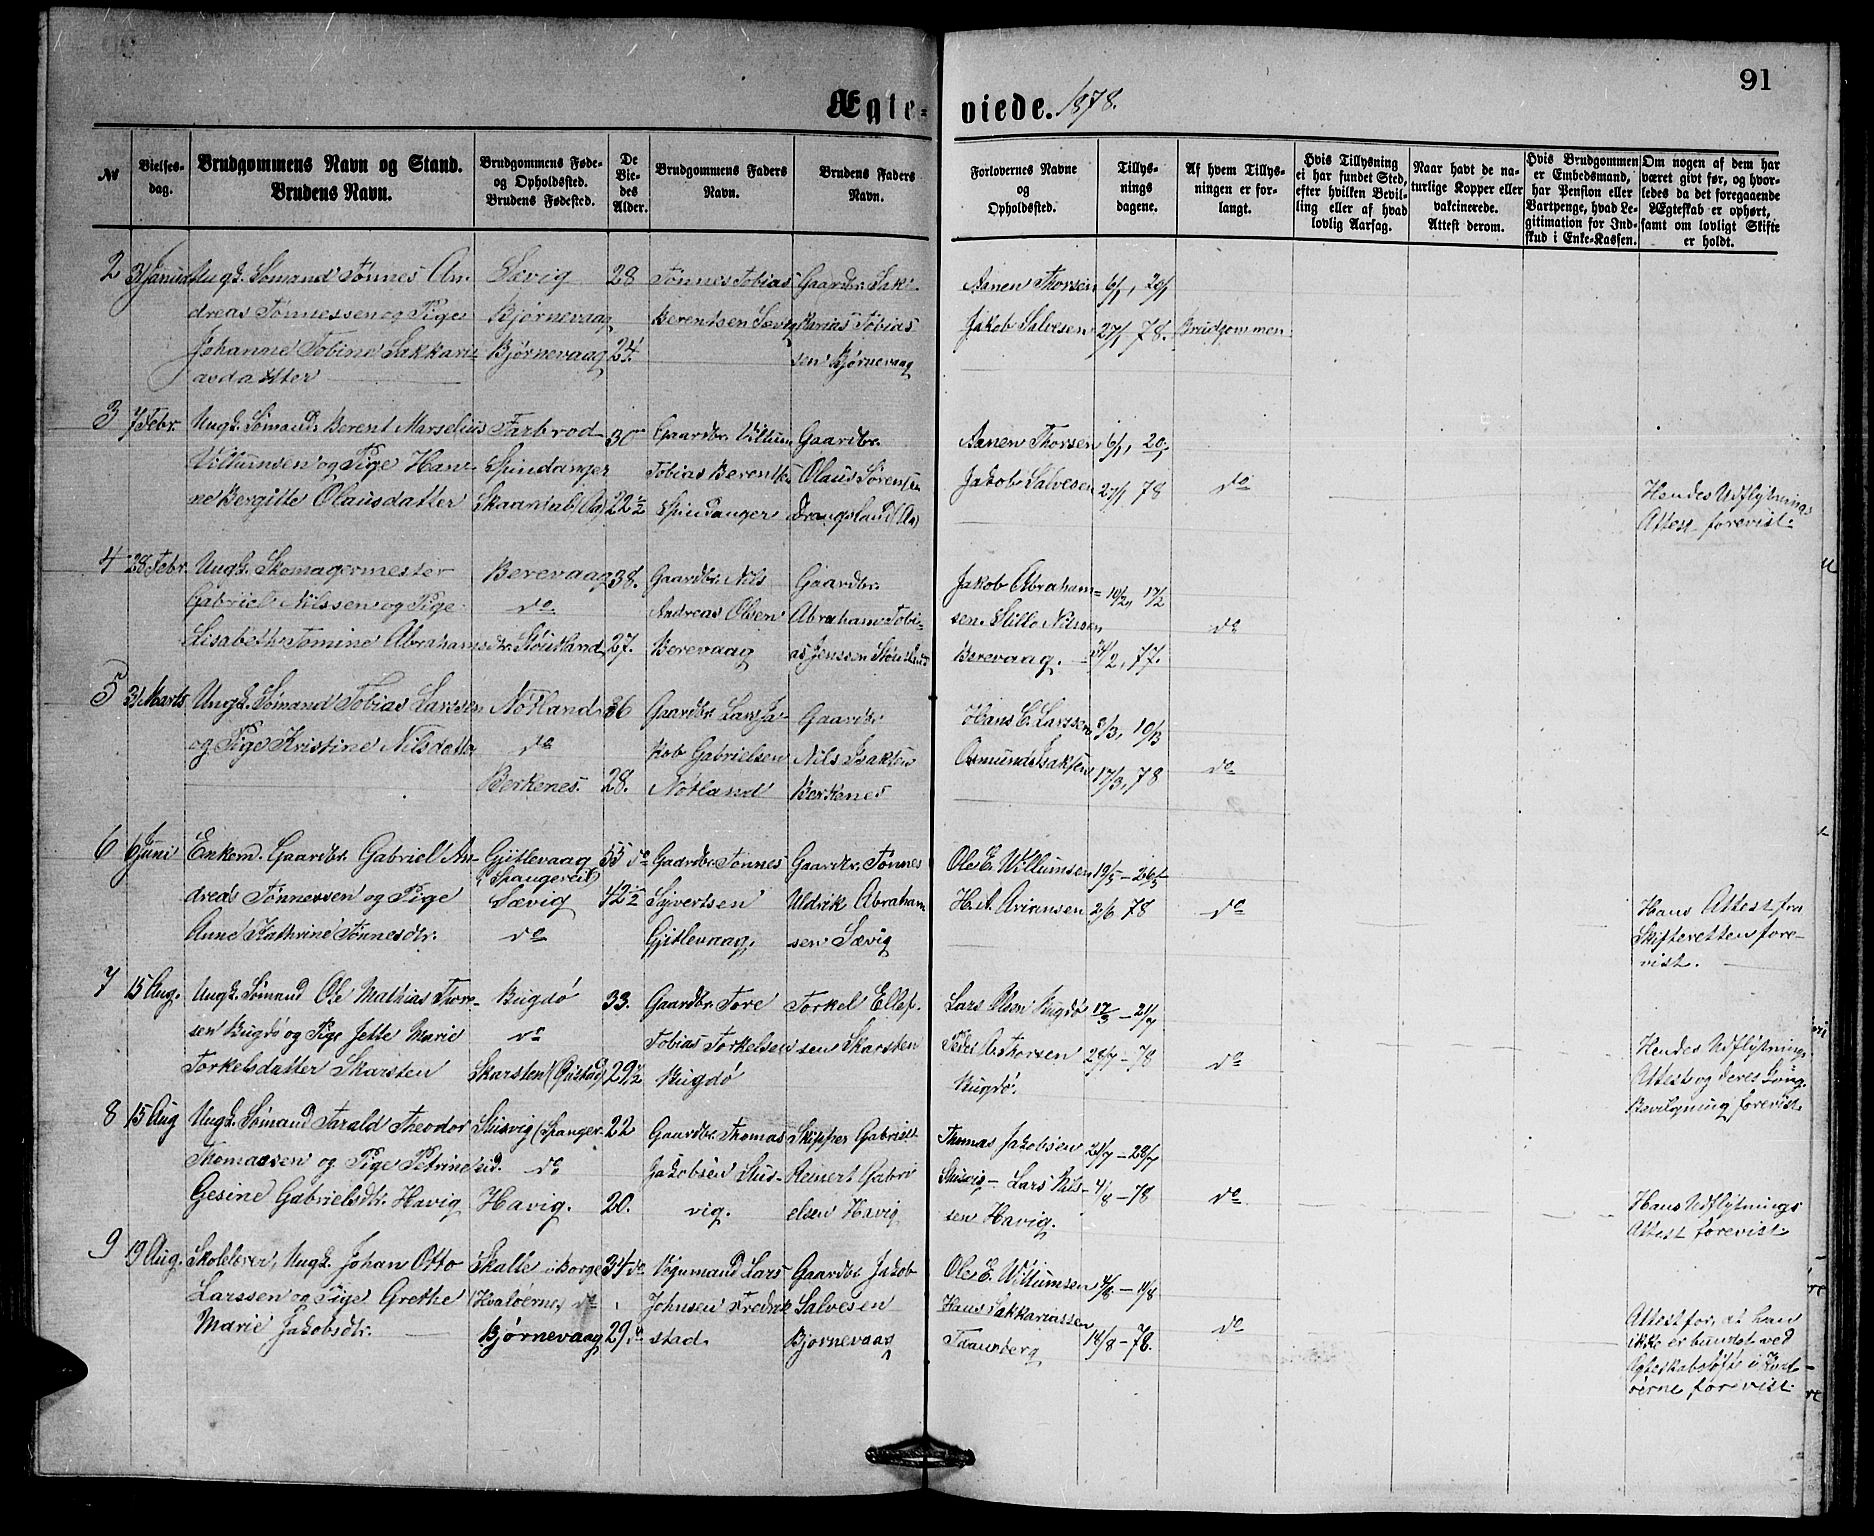 91
Ægte-viede. 1878.
No
Vielses-
dag.
Brudgommens Navn og Stand.
Brudens Navn.
Brudgommens Føde-
og Opholdssted.
Brudens Fødested.
De
Vie-
des
Alder.
Brudgommens Faders
Navn.
Brudens Faders
Navn.
Forlovernes Navne
og
Opholdssted.
Tillys-
nings
dagene.
Af hvem Tillys-
ningen er for-
langt.
Hvis Tillysning
ei har fundet Sted,
efter hvilken Bevil-
ling eller af hvad
lovlig Aarsag.
Naar havt de na-
turlige Kopper eller
vakcinerede.
Attest derom.
Hvis Brudgommen
er Embedsmand,
har Pension eller
Vartpenge, hvad Le-
gitimation for Ind-
skud i Enke-Kassen.
Om nogen af dem har
været givt før, og hvor-
ledes da det foregaaende
Ægteskab er ophørt,
samt om lovligt Skifte
er holdt.
2 31 Januar Ungk. Sømand Tønnes An- Sævig 28 Tønnes Tobias Gaardbr. Sak- Aanen Thorsen 6/1, 20/1
dreas Tønnessen og Pige Bjørnevaag Berentsen Sævig karias Tobias
Johanne Tobine Sakkari- Bjørnevaag 24. sen Bjørnevaag Jakob Salvesen 27/1 78. Brudgommen
asdatter
3 7 Febr. Ungk. Sømand Berent Marselius Farbrod 30 Gaardbr. Villum Gaardbr. Aanen Thorsen 6/1, 20/1
Villumsen og Pige Han- Spindanger Tobias Berentsen Olaus Sørensen
ne Bergitte Olausdatter 22½ Spindanger Drangsland Jakob Salvesen 27/1 78 do Hendes Udflytnings
Attest forevist.
4 28 Febr. Ungk. Skomagermester Berevaag 38. Gaardbr. Nils Gaardbr. Jakob Abraham-
Gabriel Nilssen og Pige do Andreas Olsen Abraham Tobi- sen. 10/2, 17/2
Elisabeth Tomine Abrahamsdtr. Støutland 27. Berevaag as Jenssen Støutland Berevaag. do
5 31 Marts Ungk. Sømand Tobias Larssen Nøtland 36 Gaardbr. Lars Ja- Gaardbr. Hans C. Larssen 3/3, 10/3
og Pige Kristine Nilsdatter do kob Gabrielsen Nils Isaksen Osmund Isaksen 17/3, 78 do
Berkenes. 28. Nøtland Berkenes
6 6 Juni Enkem. Gaardbr. Gabriel An- Gjitlevaag 55 do Gaardbr. Tønnes Gaardbr. Tønnes Ole E. Willumsen 19/5 - 26/5
(Spangereid)
dreas Tønnessen og Pige Sævig 42½ Sijvertsen Uldrik Abraham 2/6 78 do Hans Attest fra
Anne Kathrine Tønnesdtr. do Gjitlevaag. sen Sævig Skifteretten fore-
vist.
7 15 Aug. Ungk. Sømand Ole Mathias Tore- Bugdø 33. Gaardbr. Tore Torkel Ellef- Lars Olsen Bugdø 21/7
sen Bugdø og Pige Jette Marie do Tobias Torkelsen sen Skarsten Thorsen 28/7 - 78 do Hendes Udflytnings
Torkelsdatter Skarsten Skarsten 29½ Bugdø Bugdø. Attest og deres Kong.
Bevilgning forevist.
8 15 Aug Ungk. Sømand Tarald Theodor Stusvig (Spanger- 22 Gaardbr. Thomas Skipper Gabriel Thomas Jakobsen 21/7 - 28/7
Thomassen og Pige Petrine eid. do Jakobsen Stus- Reinert Gabri Stusvig - Lars Nils- 4/8 - 78 do Hans Udflytnings
Gesine Gabrielsdtr. Havig Havig. 20. vig. elsen Havig sen Havig. Attest forevist.
9 19 Aug. Skolelærer, Ungk. Johan Otto Skalle i Borge 34 do Lars Gaardbr. Jakob Ole E. Willumsen 4/8 - 11/8
Larssen og Pige Grethe (Hvaløerne) do Johnsen Fredrik Salvesen Hans Sakkariassen do Attest for, at han
Marie Jakobsdtr. Bjørnevaag 29 do stad. Bjørnevaag 18/8 - 78. ikke er bundet ved
Ægteskabsløfte i Hval-
øerne forevist.